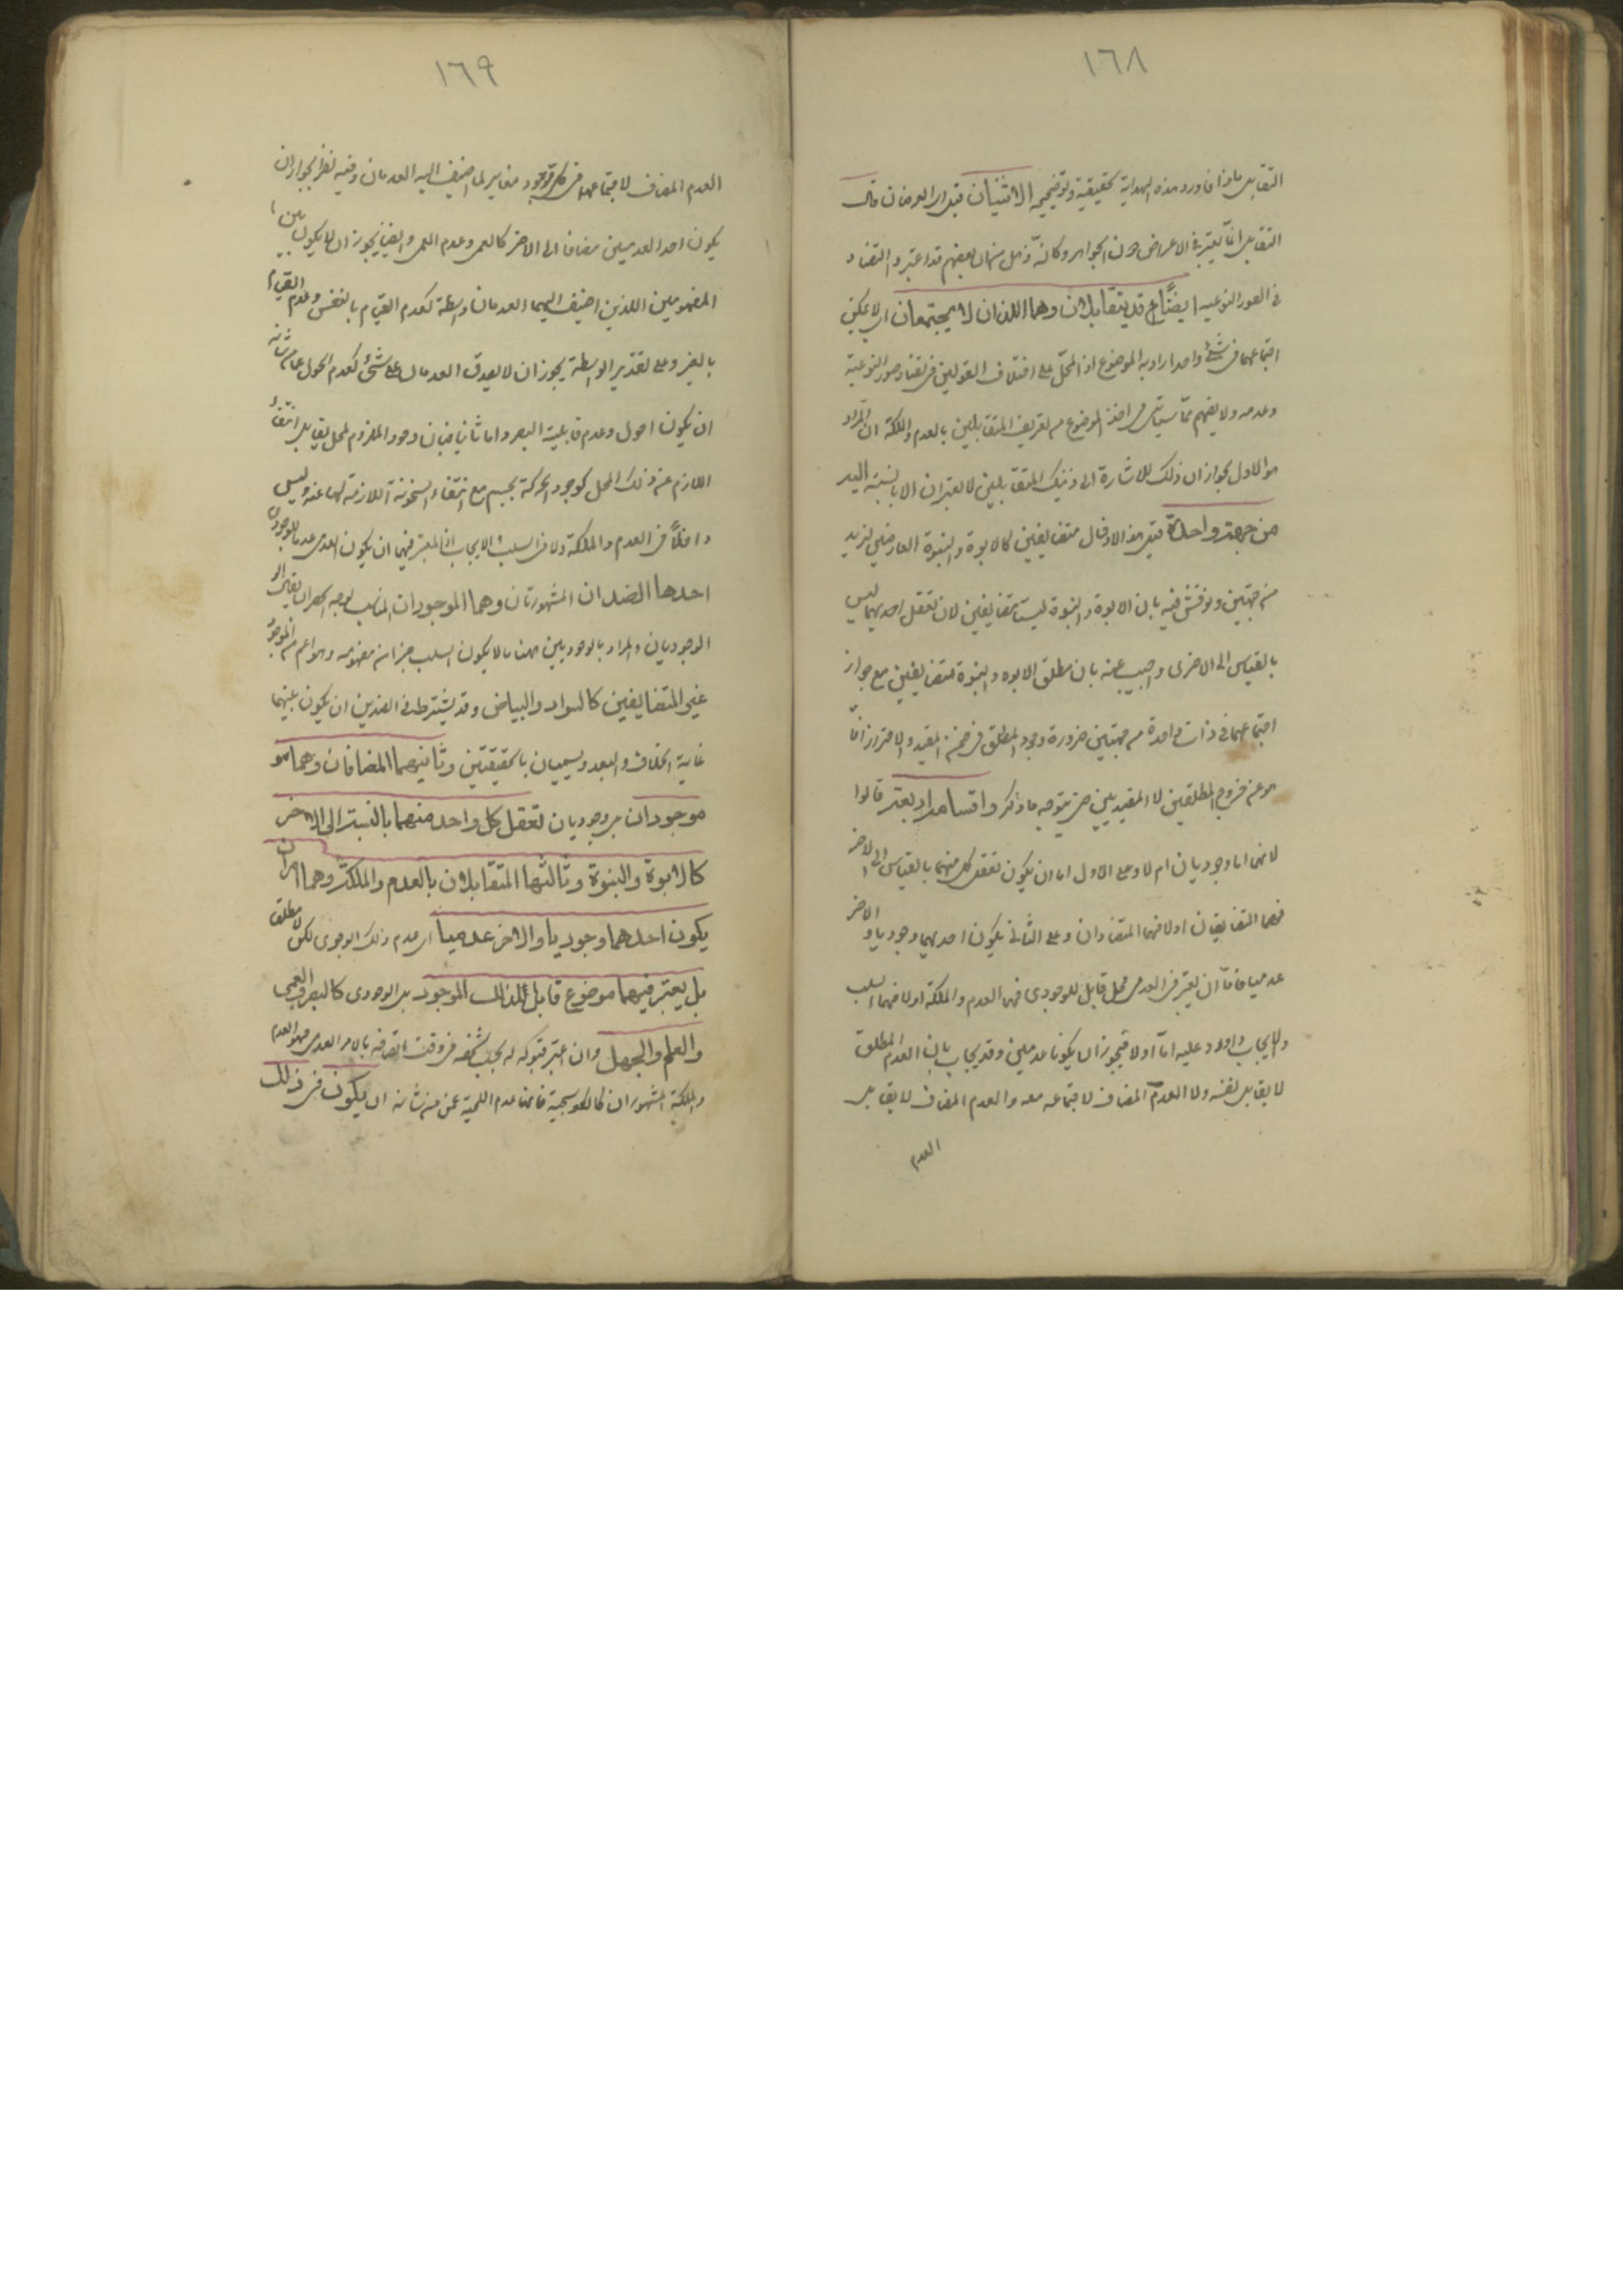 ١٦٨
التقابل ماذا فاورد هذه الهداية لتحقيقية وتوضيحه الاثنان قيل اى العرضان فان
التقابل انما يعتبر فى الاعراض دون الجواهر وكانه ذهل عن ان بعضهم قد اعتبر التضاد
فى الصور النوعية ايضا قد يتقابلان وهما اللذان لا يجتمعان اى لا يمكن
اجتماعهما فى شئ واحد اراد به الموضوع او المحل على اختلاف القولين فى تضاد صور النوعية
وعدمه ولا يفهم مما سيأتى من اخذ الموضوع من تعريف المتقابلين بالعدم والملكة ان المراد
هو الاول لجواز ان ذلك للاشارة الى ان ذينك المتقابلين لا يعتبران الا بالنسبة اليه
من جهة واحدة قيل هذا لادخال متضايفين كالابوة والبنوة العارضين لزيد
من جهتين ونوقش فيه بان الابوة والبنوة ليستا متضايفين لان تعقل احديهما ليس
بالقياس الى الاخرى واجيب عنه بان مطلق الابوة والبنوة متضايفين مع جواز
اجتماعهما فى ذات واحدة من جهتين ضرورة وجود المطلق فى ضمن المقيد والاحتراز انما
هو عن خروج المطلقين لا المقيدين حتى يتوجه ما ذكر واقسامه اربعة قالوا
لانهما اما وجوديان ام لا وعلى الاول اما ان يكون تعقل كل منهما بالقياس الى الاخر
فهما المتضايفان اولا فهما المتضادان وعلى الثانى يكون احدهما وجوديا والاخر
عدميا فاما ان يعتبر فى العدمى محل قابل للوجودى فهما العدم والملكة اولا فهما السلب
والايجاب واورد عليه اما اولا فيجوز ان يكونا عدميين وقد يجاب بان العدم المطلق
لا يقابل نفسه ولا العدم المضاف لاجتماعه معه والعدم المضاف لا يقابل
العدم
١٦٩
العدم المضاف لاجتماعهما فى كل موجود مغاير لما اضيف اليه العدمان وفيه نظر لجواز ان
يكون احد العدميين مضافا الى الاخر كالعمى وعدم العمى وايضا يجوز ان لا يكون بين
المفهومين اللذين اضيف اليهما العدمان واسطة كعدم القيام بالنفس وعدم القيام
بالغير وعلى تقدير الواسطة يجوز ان لا يصدق العدمان على شئ كعدم الحول عما من شانه
ان يكون احول وعدم قابلية البصر واما ثانيا فبان وجود الملزوم لمحل يقابل انتفاء
اللازم عن ذلك المحل كوجود الحركة لجسم مع انتفاء السخونة اللازمة لها عنه وليس
داخلا فى العدم والملكة ولا فى السلب والايجاب اذ المعتبر فيهما ان يكون العدمى عدما للوجودى
احدها الضدان المشهورتان وهما الموجودان المناسب لوجه الحصر ان يقال
الوجوديان والمراد بالوجوديين ههنا ما لا يكون السلب جزءا من مفهومه وهو اعم من الموجود
غير المتضايفين كالسواد والبياض وقد يشترط فى الضدين ان يكون بينهما
غاية الخلاف والبعد ويسميان بالحقيقتين وثانيهما المضافان وهما
موجودان بل وجوديان تعقل كل واحد منهما بالنسبة الى الاخر
كالابوة والبنوة وثالثها المتقابلان بالعدم والملكة وهما امران
يكون احدهما وجوديا والاخر عدميا اى عدم ذلك الوجودى لكن لا مطلقا
بل يعتبر فيهما موضوع قابل لذلك الموجود بل الوجودى كالبصر والعمى
والعلم والجهل وان اعتبر قبوله له بحسب شخصه فى وقت اتصافه بالامر العدمى فهو العدم
والملكة المشهوران كالكوسجية فانها عدم اللحية عمن من شانه ان يكون فى ذلك